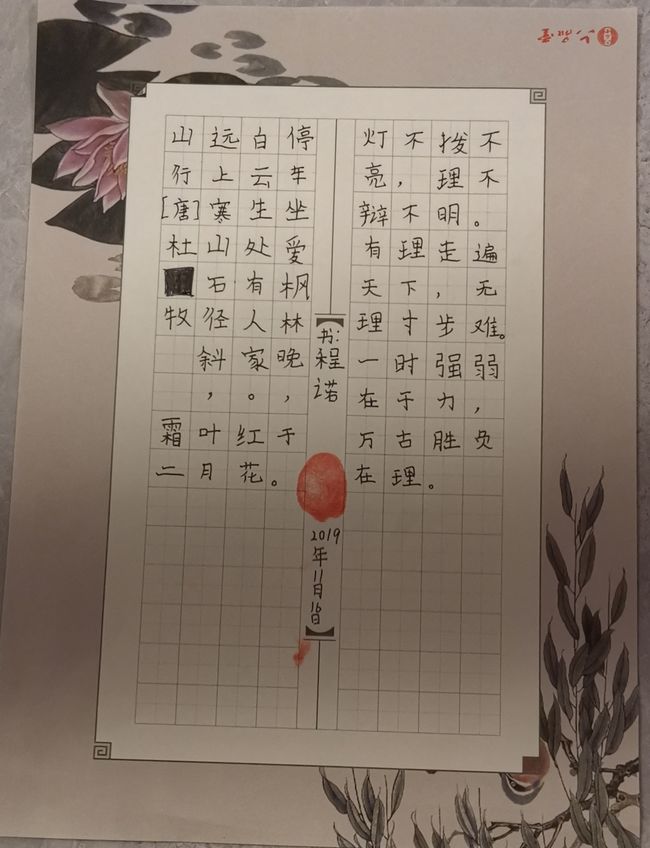 山行[唐]杜牧
远上寒山石径斜，
白云生处有人家。
停车坐爱枫林晚，
霜叶红于
二月花。
书：程诺
2019年11月16日
灯不拨不
亮，理不
辩不明。
有理走遍
天下，无
理寸步难。
一时强弱
在于力，
万古胜负
在理。